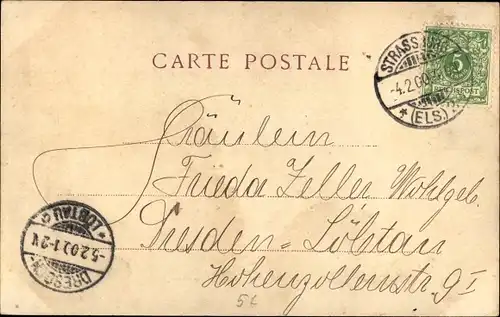 CARTE POSTALE
STRASSBURG
-4.2.00.
* (ELS.)
5
REICHSPOST
Fräulein
Frieda Zeller, Wohlgeb.
Dresden=Löbtau
Hohenzollernstr. 9 I
* LÖBTAU *
-5.2.00.1-2N.
DRESDEN
56